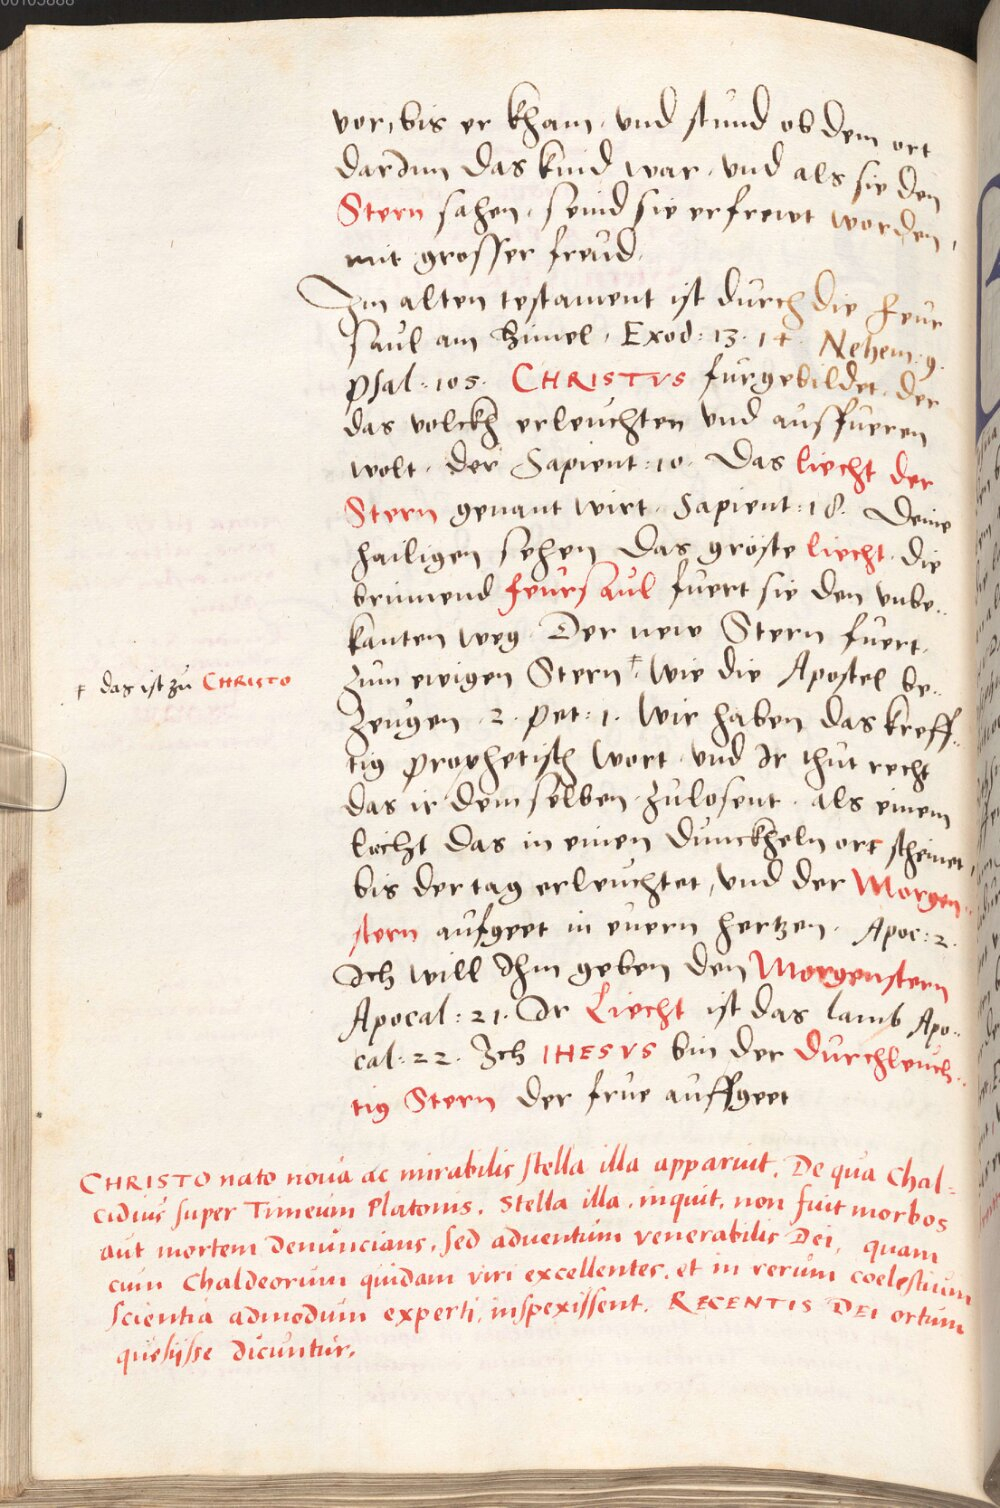 00105888
vor, bis er kham, und stund ob dem ort
darinn das kind war, und als sie den
Stern sahen, seind sie erfrewt worden,
mit grosser freud.
Im alten testament ist durch die feur
saul am himel, Exod: 13. 14. Nehem: 9.
psal: 105. CHRISTVS furgebildet, der
das volckh erleuchten und aussfueren
wolt, der Sapient: 10. Das liecht der
Stern genant wirt, Sapient: 18. Deine
hailigen sehen das gröste liecht, die
brinnend feursaul fuert sie den unbe=
kanten weg. Der new Stern fuert,
zum ewigen Stern ⸗ Wie die Apostel be=
⸗ das ist zu CHRISTO
zeugen, 2. pet: 1. Wir haben das kreff=
tig prophetisch Wort, und Ir thut recht
das ir dem selben zulosent, als einem
liecht das in einen dunckheln ort scheinet,
bis der tag erleuchtet, und der Morgen=
stern aufgeet in euern hertzen. Apoc: 2.
Ich will Ihm geben den Morgenstern
Apocal: 21. Ir Liecht ist das lamb Apo=
cal: 22. Ich IHESVS bin der durchleuch=
tig Stern der frue auffgeet
CHRISTO nato noua ac mirabilis stella illa apparuit. De qua Chal=
cidius super Timeum Platonis. Stella illa, inquit, non fuit morbos
aut mortem denuncians, sed aduentum venerabilis Dei, quam
cum Chaldeorum quidam viri excellentes, et in rerum coelestium
scientia admodum experti, inspexissent, RECENTIS DEI ortum
quesijsse dicuntur.